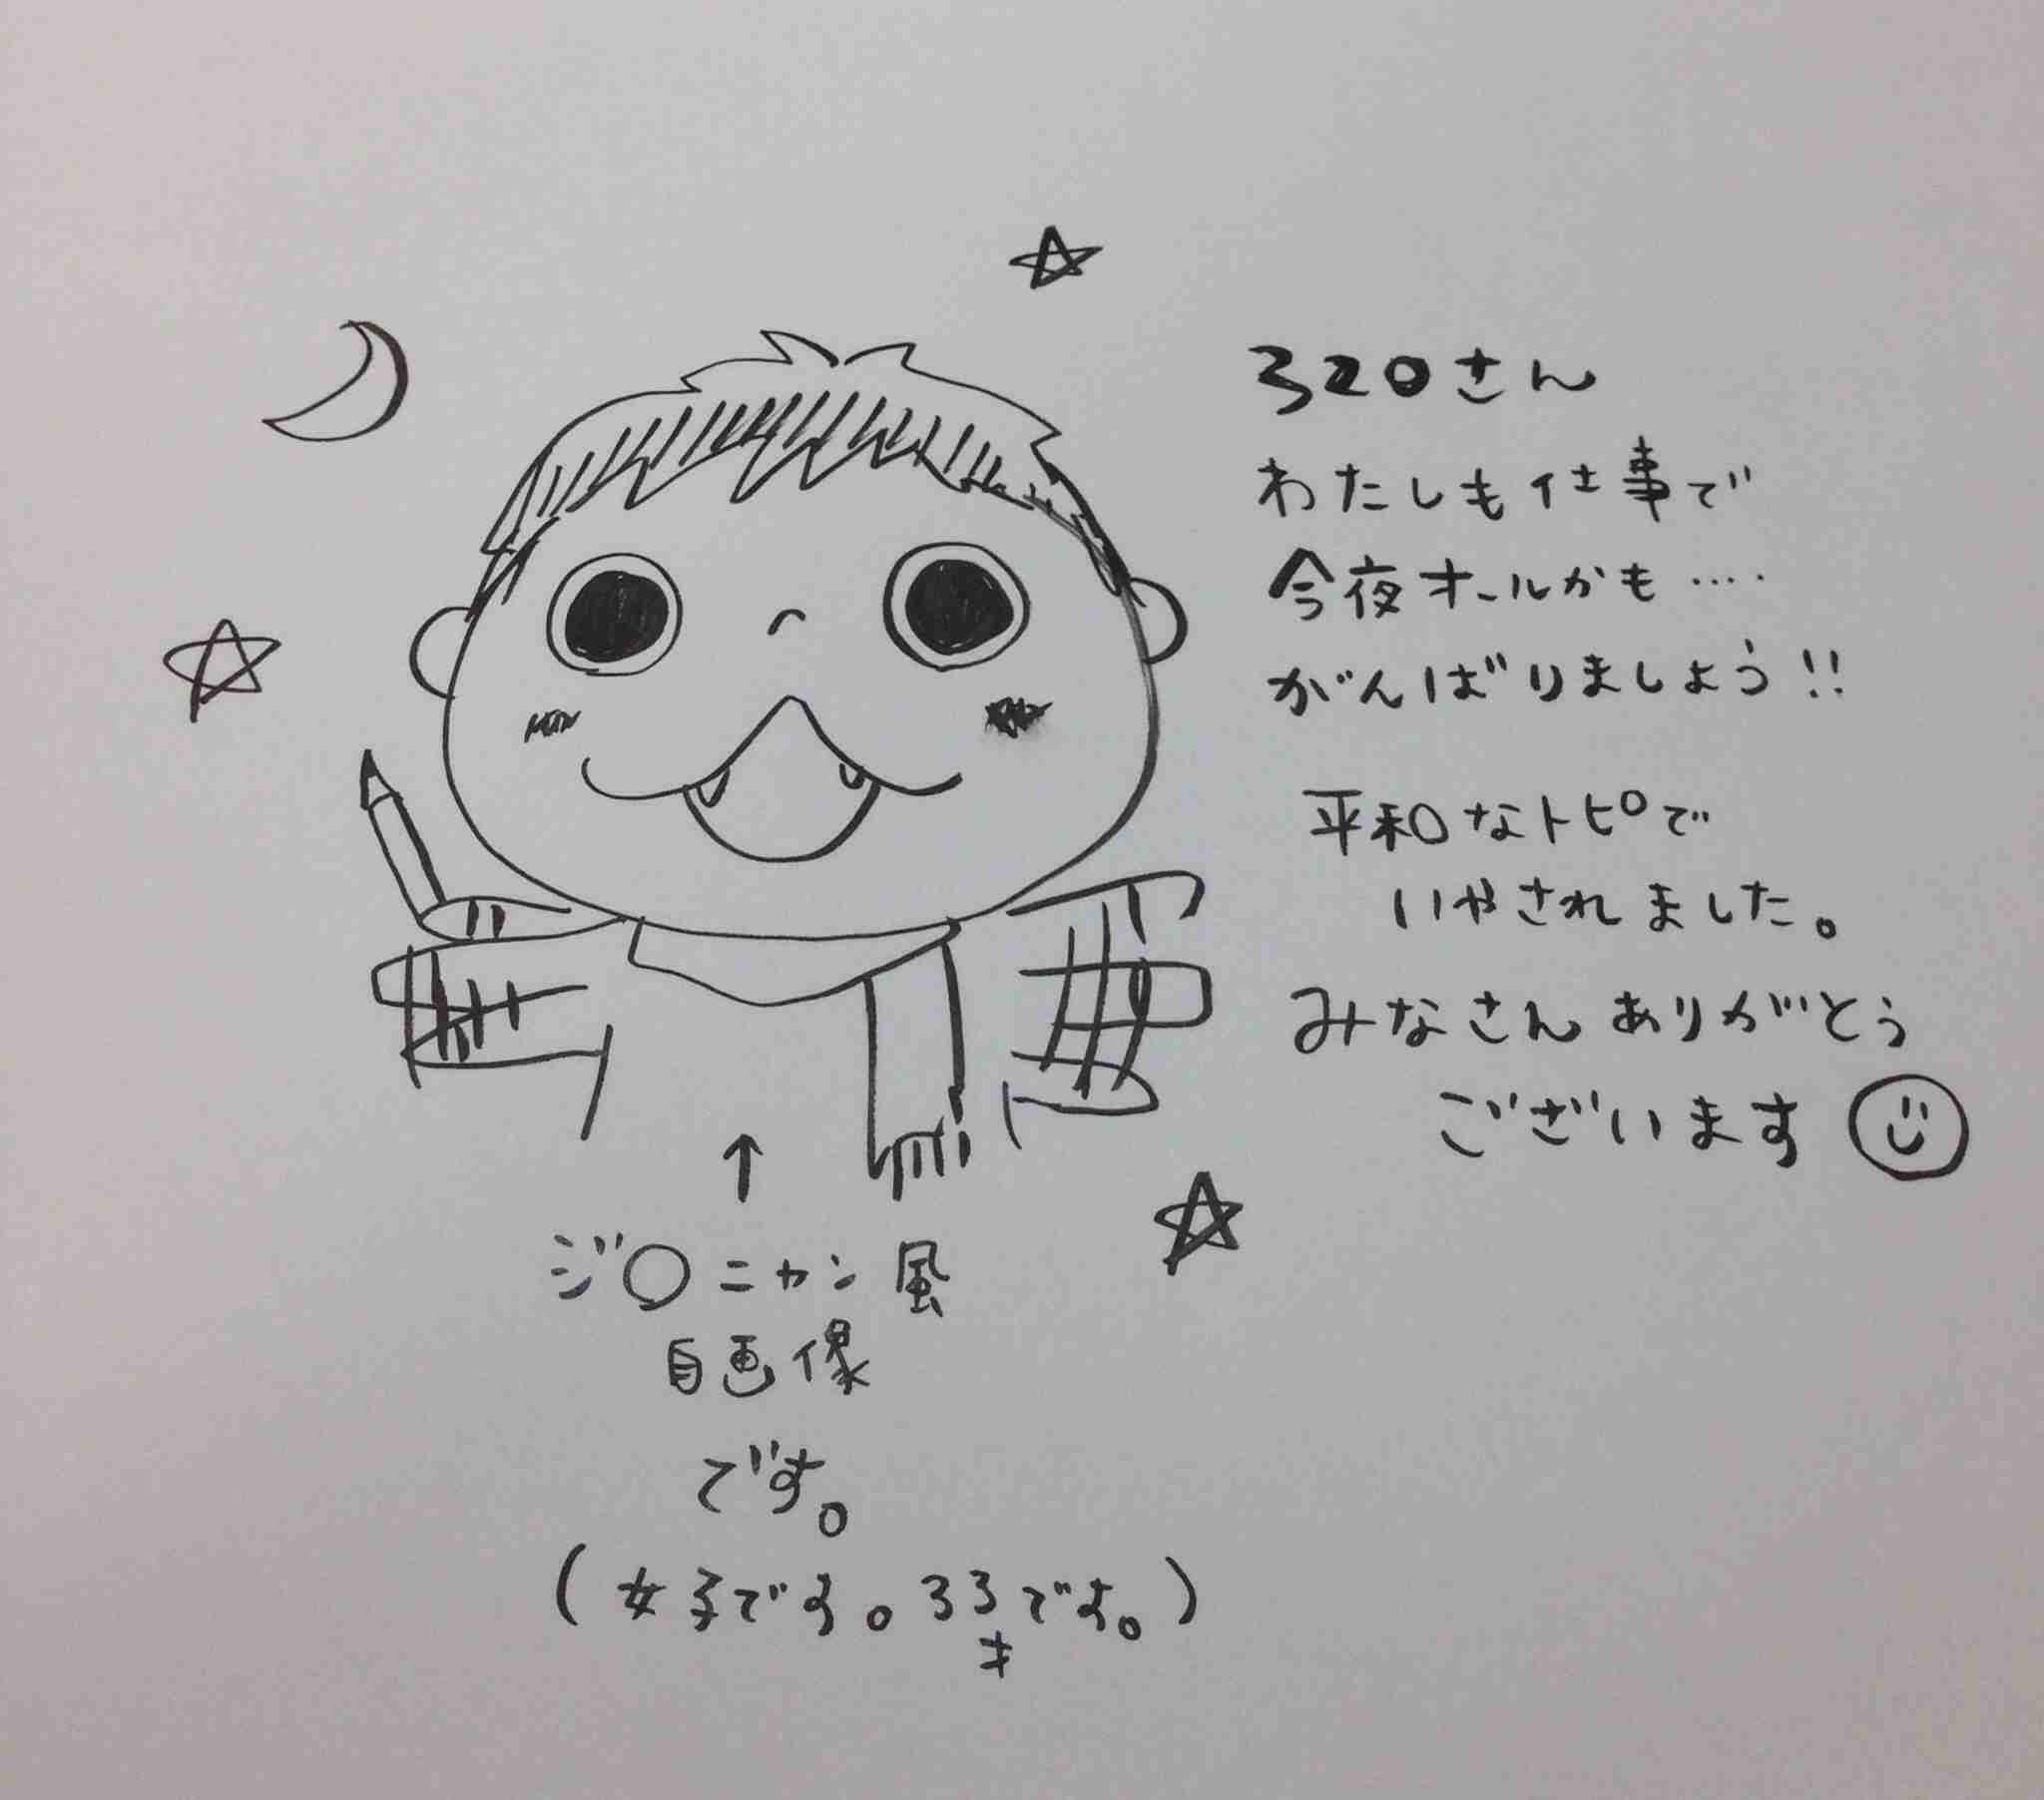 320さん
わたしも仕事で
今夜オールかも‥‥
がんばりましょう!!
平和なトピで
いやされました。
みなさんありがとう
ございます
↑
ジ〇ニャン風
自画像
です。
(女子です。33です。)